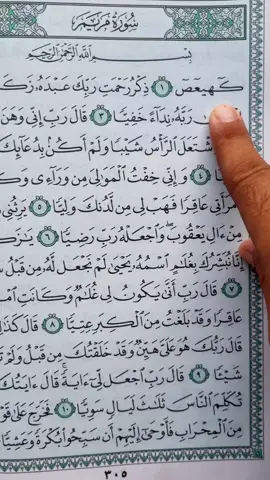 سُورَةُ مَرْيَمَ
بِسْمِ اللَّهِ الرَّحْمَٰنِ الرَّحِيمِ
كٓهيعٓصٓ ١ ذِكْرُ رَحْمَتِ رَبِّكَ عَبْدَهُۥ زَكَ
رَبَّهُۥ نِدَآءً خَفِيًّا ٣ قَالَ رَبِّ إِنِّي وَهَنَ
شْتَعَلَ ٱلرَّأْسُ شَيْبًا وَلَمْ أَكُنۢ بِدُعَآئِكَ
٤ وَإِنِّي خِفْتُ ٱلْمَوَٰلِيَ مِن وَرَآءِي وَكَ
مْرَأَتِي عَاقِرًا فَهَبْ لِي مِن لَّدُنكَ وَلِيًّا ٥ يَرِثُنِي
مِنْ ءَالِ يَعْقُوبَ وَٱجْعَلْهُ رَبِّ رَضِيًّا ٦ يَٰزَكَ
إِنَّا نُبَشِّرُكَ بِغُلَٰمٍ ٱسْمُهُۥ يَحْيَىٰ لَمْ نَجْعَل لَّهُۥ مِن قَبْلُ
٧ قَالَ رَبِّ أَنَّىٰ يَكُونُ لِي غُلَٰمٌ وَكَانَتِ ٱمْ
عَاقِرًا وَقَدْ بَلَغْتُ مِنَ ٱلْكِبَرِ عِتِيًّا ٨ قَالَ كَذَٰلِ
قَالَ رَبُّكَ هُوَ عَلَيَّ هَيِّنٌ وَقَدْ خَلَقْتُكَ مِن قَبْلُ وَلَمْ تَ
شَيْـًٔا ٩ قَالَ رَبِّ ٱجْعَل لِّيٓ ءَايَةً قَالَ ءَايَتُكَ
تُكَلِّمَ ٱلنَّاسَ ثَلَٰثَ لَيَالٍ سَوِيًّا ١٠ فَخَرَجَ عَلَىٰ قَوْ
مِنَ ٱلْمِحْرَابِ فَأَوْحَىٰٓ إِلَيْهِمْ أَن سَبِّحُوا۟ بُكْرَةً وَعَشِيًّا
٣٠٥